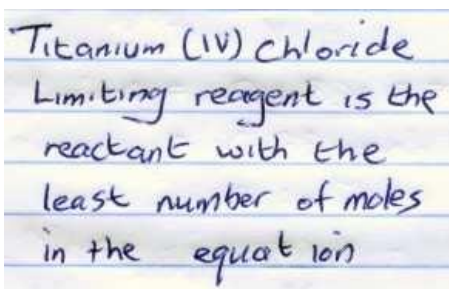 Titanium (IV) chloride
Limiting reagent is the
reactant with the
least number of moles
in the equation